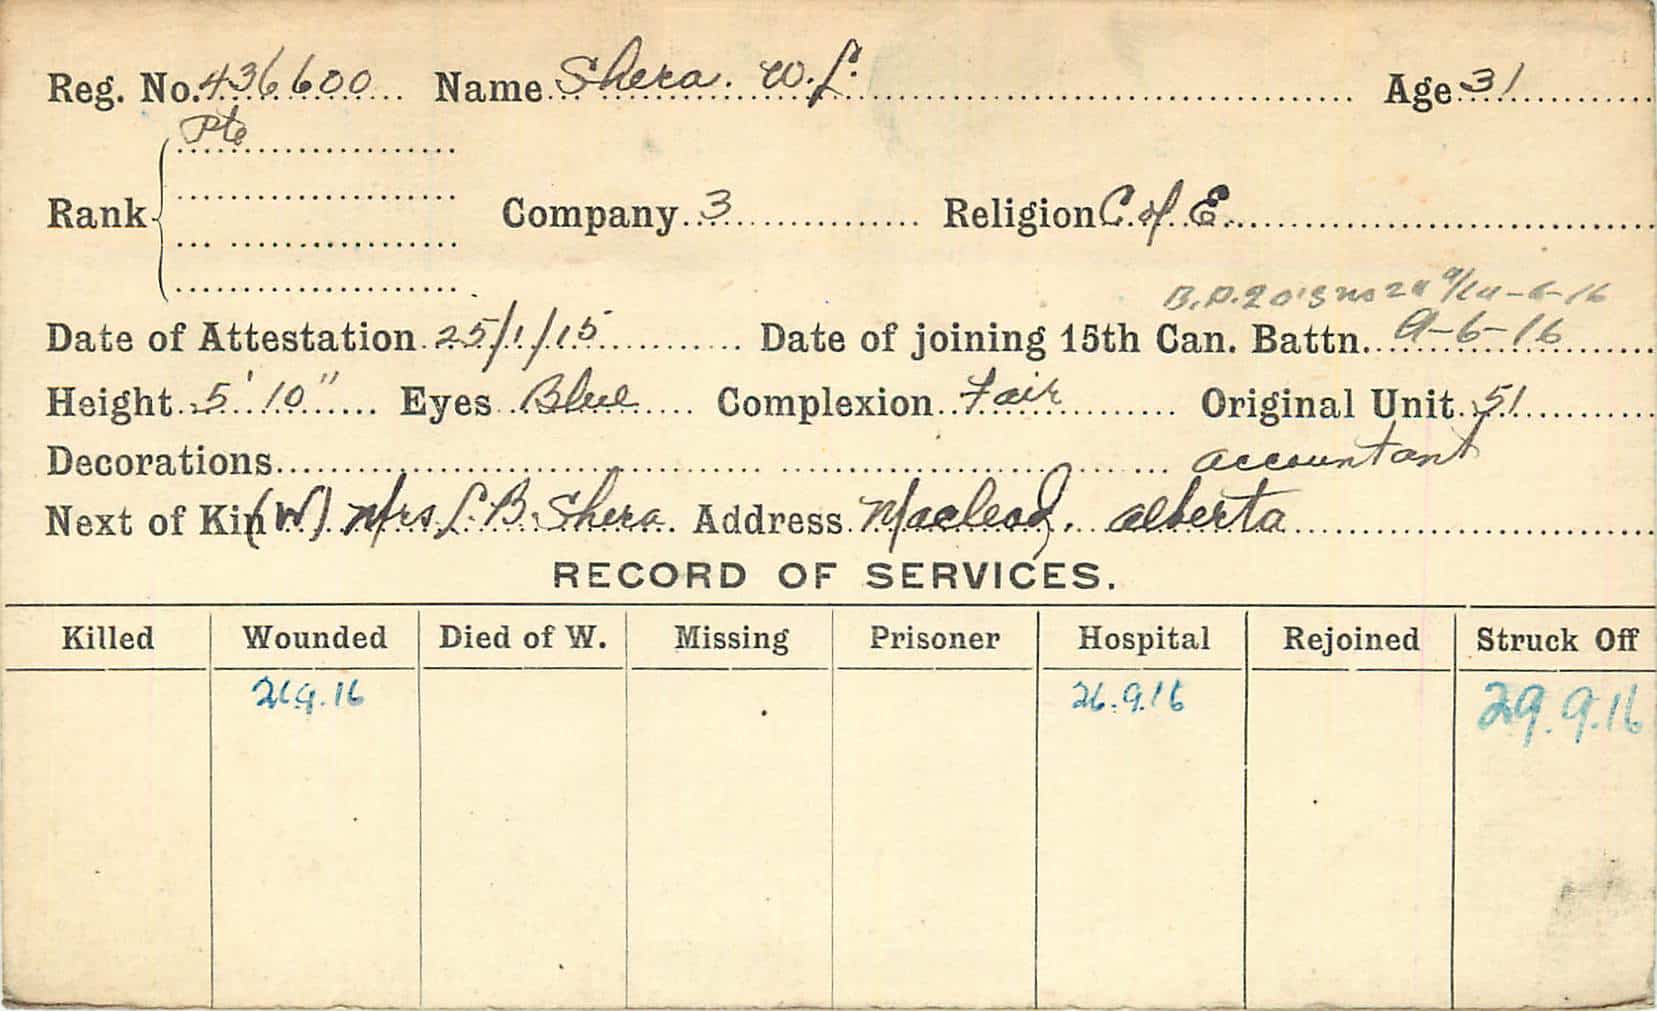 Reg. No. 436600 Name Shera. W. L. Age 31
Pte
Rank Company 3 Religion C. of E.
Date of Attestation 25/1/15 Date of joining 15th Can. Battn. 9-6-16
Height 5' 10" Eyes Blue Complexion Fair Original Unit 51
Decorations accountant
Next of Kin (W) Mrs. L. B. Shera. Address Macleod, alberta
RECORD OF SERVICES.
Killed Wounded Died of W. Missing Prisoner Hospital Rejoined Struck Off
26.9.16 26.9.16 29.9.16